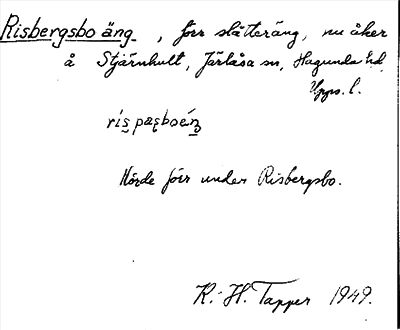 Risbergsbo äng, förr slåtteräng, nu åker
å Stjärnhult, Järlåsa sn, Hagunda hd
Upps. l.
Hörde förr under Risbergsbo.
K.-H. Tapper 1949.